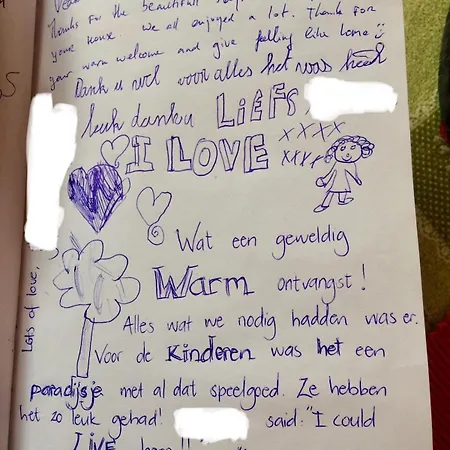 Thanks for the beautiful
your house. We all enjoyed a lot. Thank for
your warm welcome and give felling like home
Dank u wel voor alles het was heel
leuk danku LIEFS
XXXX
I LOVE XXXX
Wat een geweldig
WARM ontvangst!
Alles wat we nodig hadden was er.
Voor de Kinderen was het een
paradijsje met al dat speelgoed. Ze hebben
het zo leuk gehad! said: "I could
LIVE here!!
Lots of love,